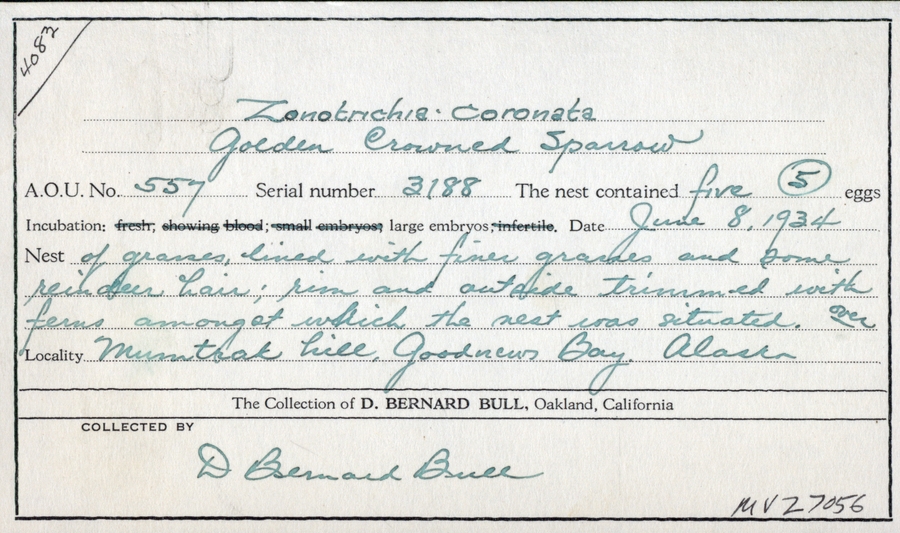 4082
Zonotrichia · Coronata
Golden Crowned Sparrow
A.O.U. No. 557 Serial number 3188 The nest contained five 5 eggs
Incubation: fresh; showing blood; small embryos; large embryos; infertile. Date June 8, 1934
Nest of grasses, lined with finer grasses and some
reindeer hair; rim and outside trimmed with
ferns amongst which the nest was situated. over
Locality Mumtrak hill, Goodnews Bay. Alaska
The Collection of D. BERNARD BULL, Oakland, California
COLLECTED BY
D Bernard Bull
MVZ 7056